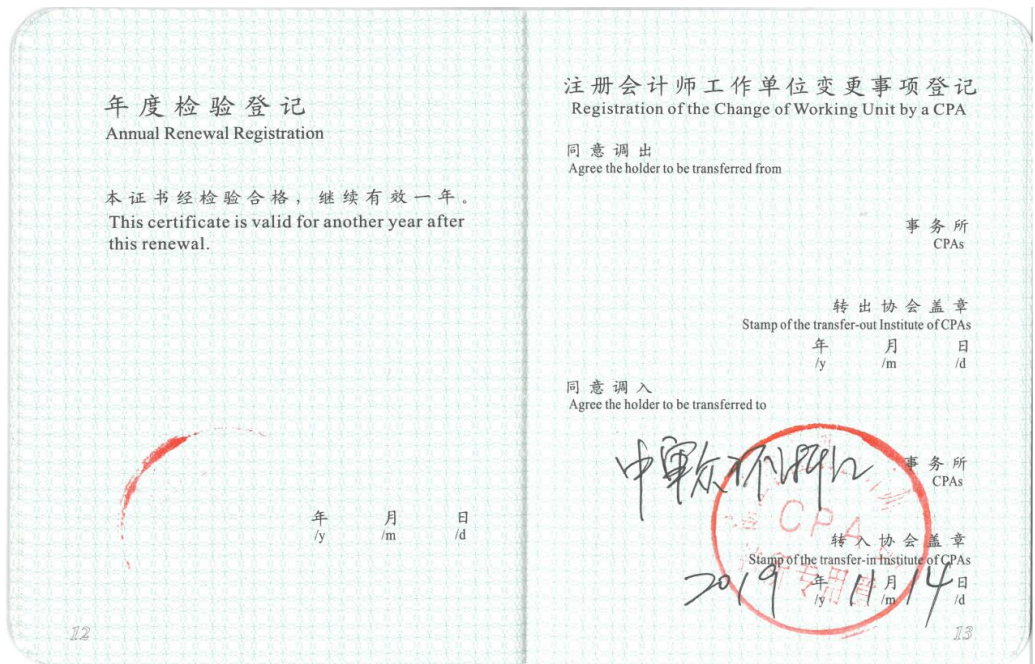 年度检验登记
Annual Renewal Registration
本证书经检验合格，继续有效一年。
This certificate is valid for another year after
this renewal.
年 月 日
/y /m /d
12
注册会计师工作单位变更事项登记
Registration of the Change of Working Unit by a CPA
同意调出
Agree the holder to be transferred from
事务所
CPAs
转出协会盖章
Stamp of the transfer-out Institute of CPAs
年 月 日
/y /m /d
同意调入
Agree the holder to be transferred to
中审众环 事务所
CPAs
CPA
转入协会盖章
Stamp of the transfer-in Institute of CPAs
专用章
2019 年 11 月 14 日
/y /m /d
13